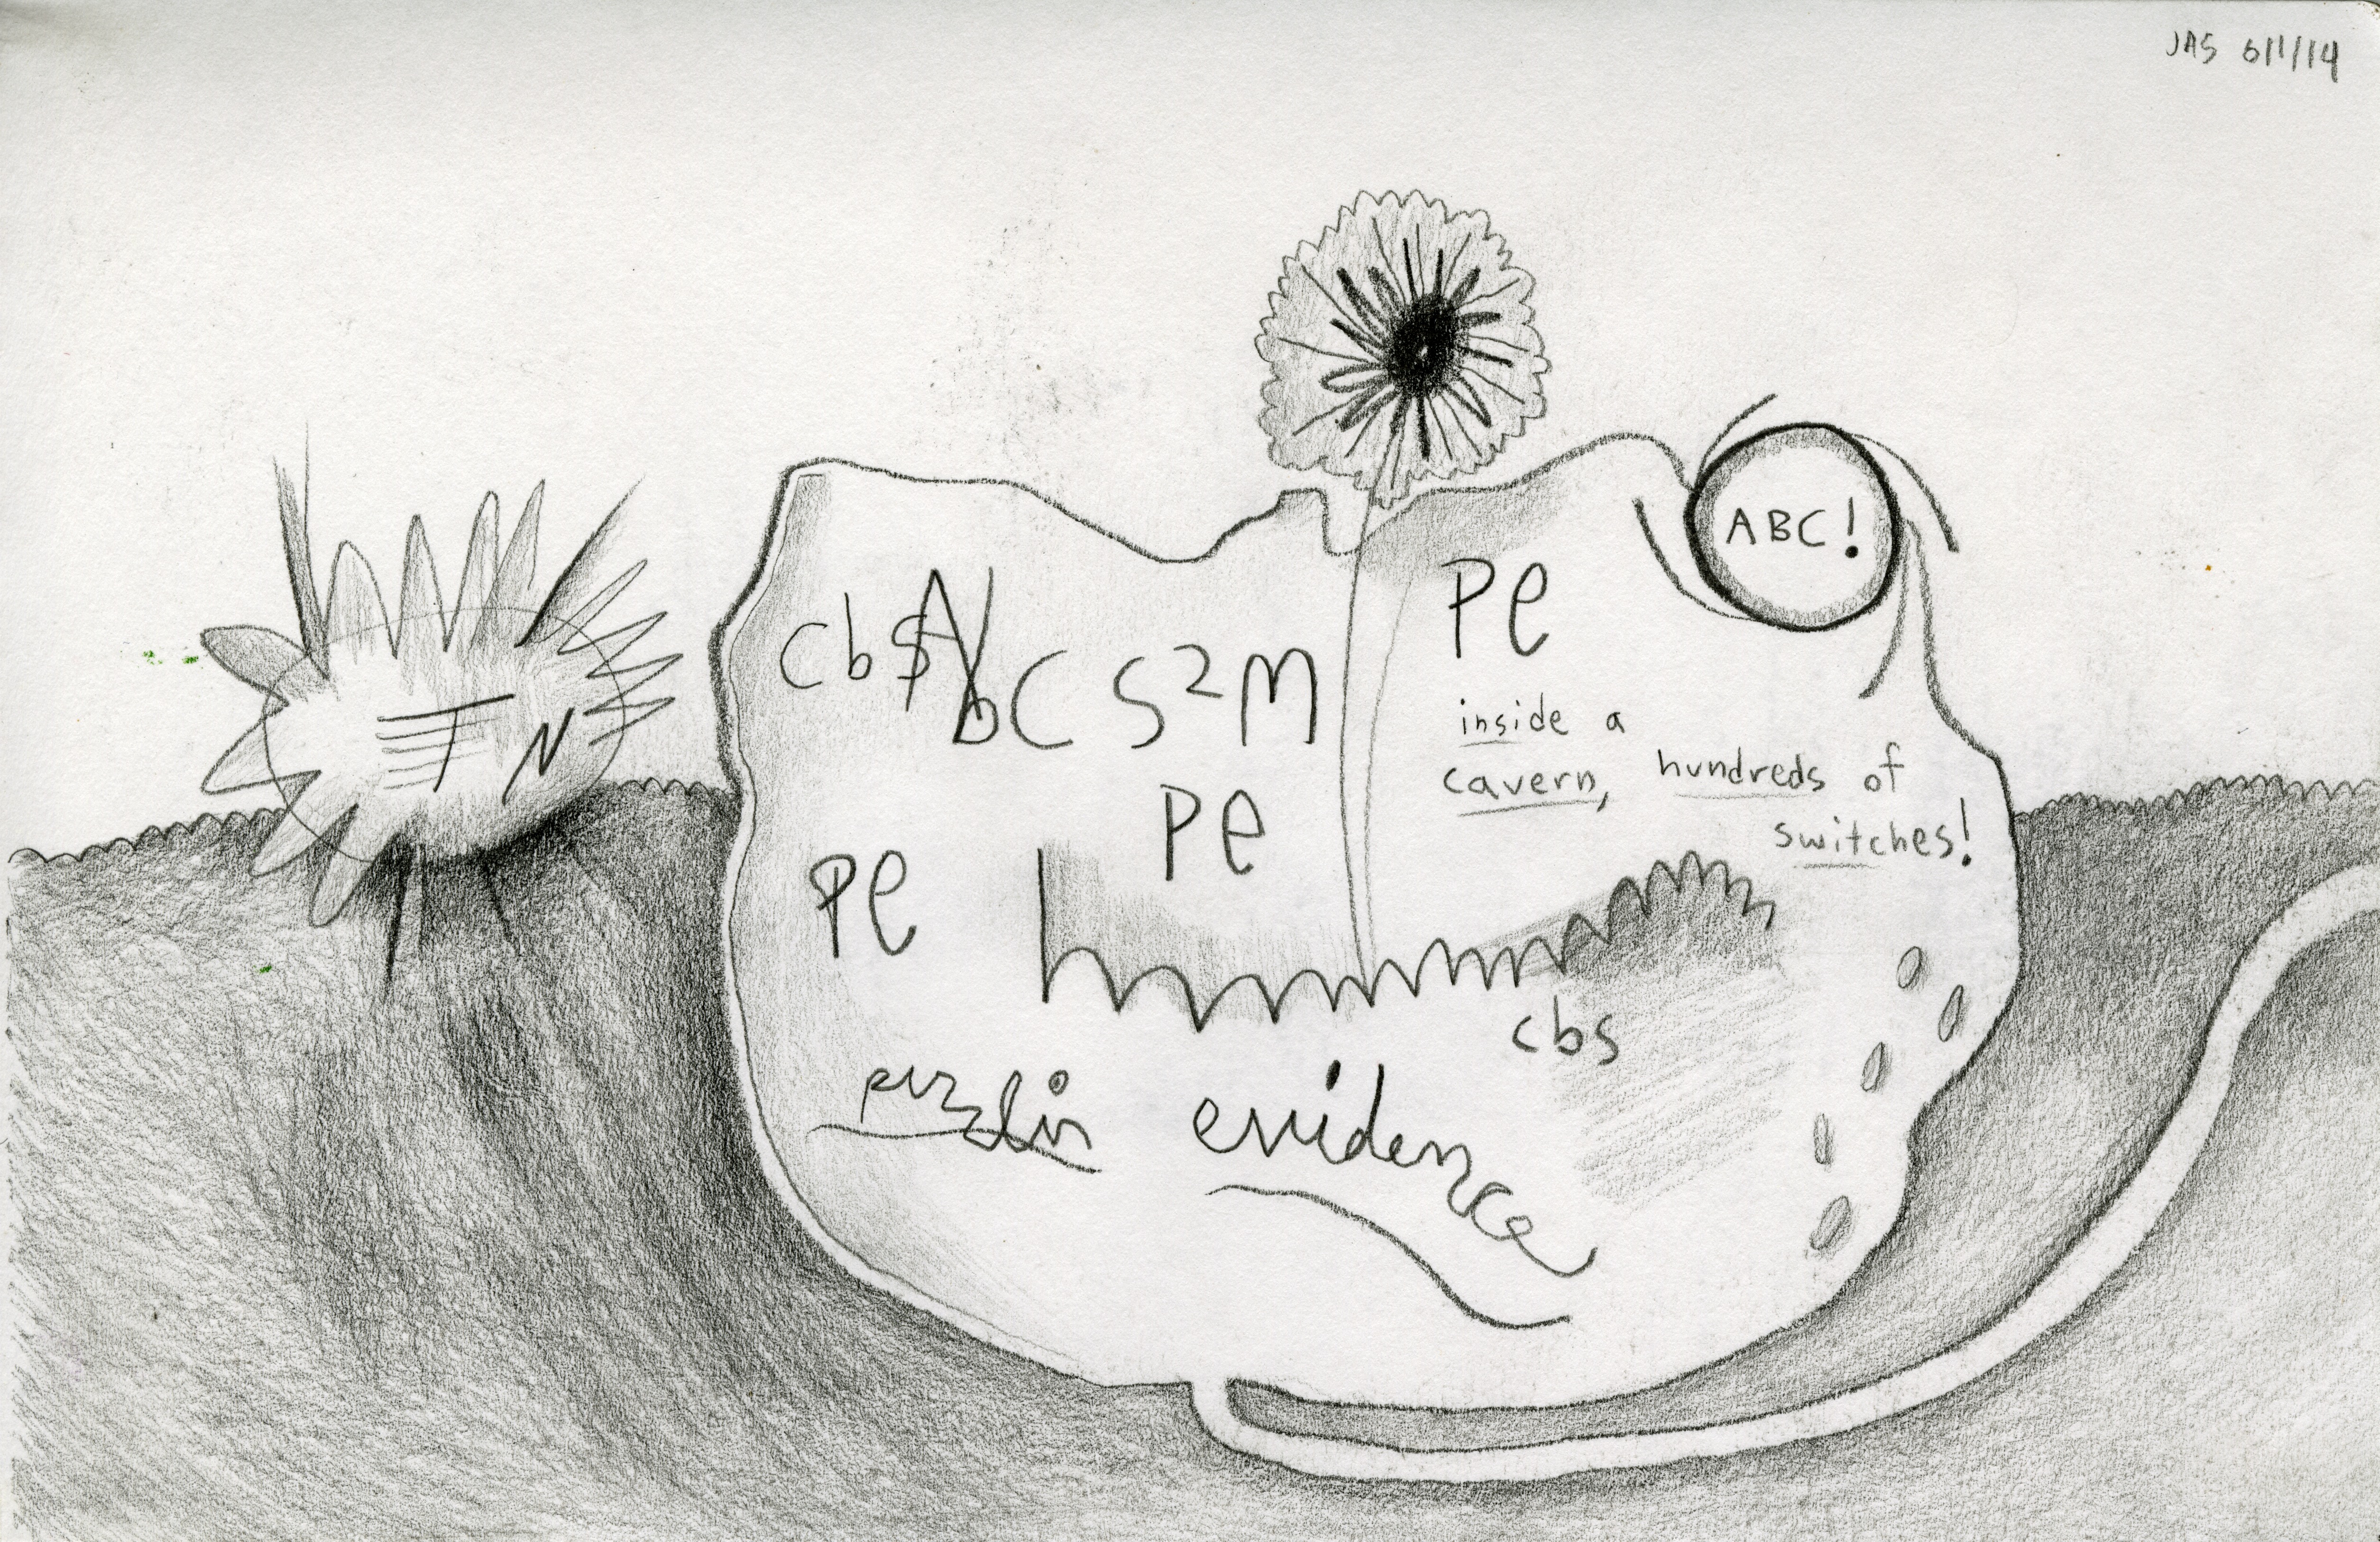 JAS 6/1/14
ABC!
Pe
cb$
AbC S2M
inside a
cavern, hundreds of
switches!
TN
Pe
Pe
cbs
puzzlin evidence